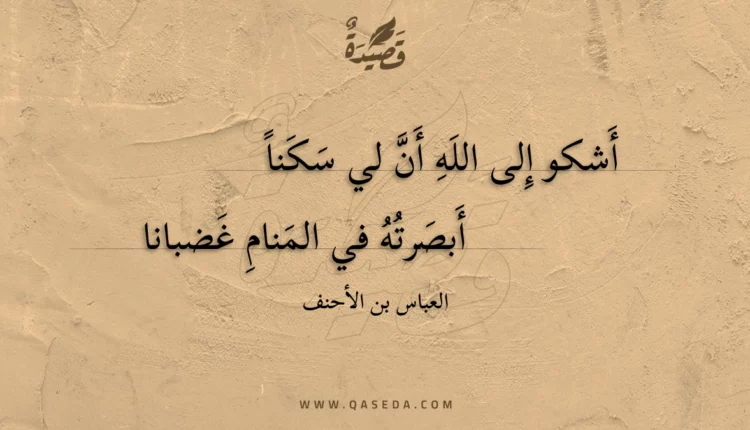 قَصِيدَةٌ
أَشكو إِلى اللَهِ أَنَّ لي سَكَناً
أَبصَرتُهُ في المَنامِ غَضبانا
العباس بن الأحنف
WWW.QASEDA.COM